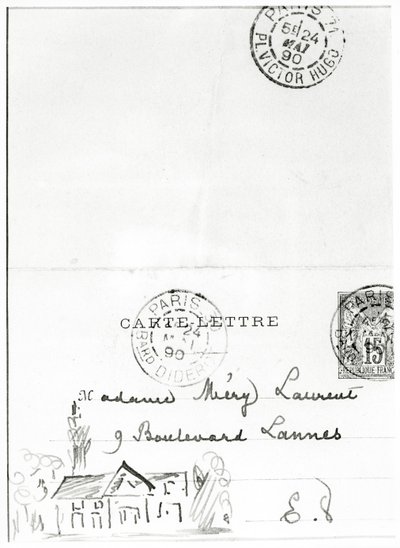 PARIS 71
5E 24
MAI
90
PL. VICTOR HUGO
PARIS
24
MAI
90
BARD DIDEROT
CARTE-LETTRE
PARIS
15
REPUBLIQUE FRANC
Madame Méry Laurent
9 Boulevard Lannes